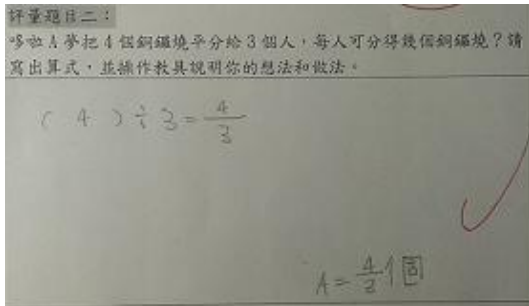 評量題目二：
哆啦A夢把4個銅鑼燒平分給3個人，每人可分得幾個銅鑼燒？請
寫出算式，並操作教具說明你的想法和做法。
( 4 ) ÷ 3 = 4/3
A = 4/3 個